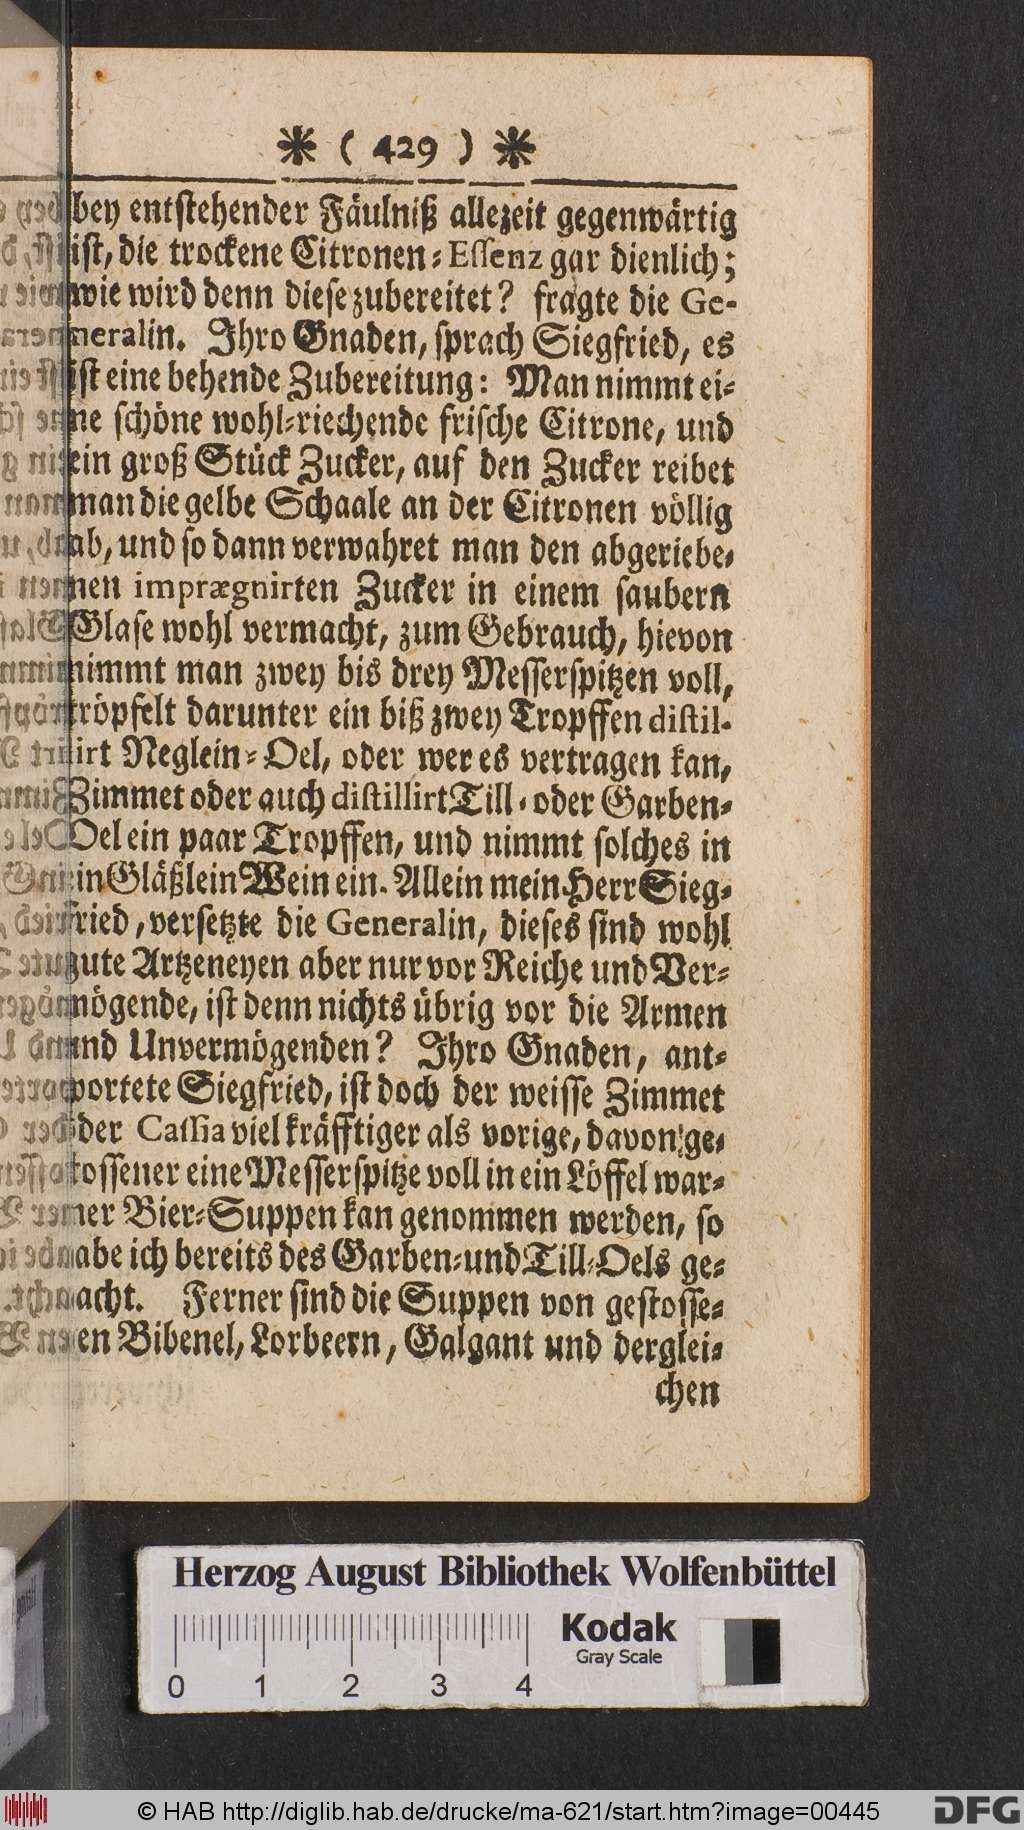 * ( 429 ) *
bey entstehender Fäulniß allezeit gegenwärtig
ist, die trockene Citronen-Essenz gar dienlich;
wie wird denn diese zubereitet? fragte die Ge-
neralin. Ihro Gnaden, sprach Siegfried, es
ist eine behende Zubereitung: Man nimmt ei-
ne schöne wohl-riechende frische Citrone, und
ein groß Stück Zucker, auf den Zucker reibet
man die gelbe Schaale an der Citronen völlig
ab, und so dann verwahret man den abgeriebe-
nen imprægnirten Zucker in einem saubern
Glase wohl vermacht, zum Gebrauch, hievon
nimmt man zwey bis drey Messerspitzen voll,
tröpfelt darunter ein biß zwey Tropffen distil-
lirt Neglein-Oel, oder wer es vertragen kan,
Zimmet oder auch distillirt Till- oder Garben-
Oel ein paar Tropffen, und nimmt solches in
in Gläßlein Wein ein. Allein mein Herr Sieg-
fried, versetzte die Generalin, dieses sind wohl
gute Artzeneyen aber nur vor Reiche und Ver-
mögende, ist denn nichts übrig vor die Armen
und Unvermögenden? Ihro Gnaden, ant-
wortete Siegfried, ist doch der weisse Zimmet
der Cassia viel kräfftiger als vorige, davon ge-
tossener eine Messerspitze voll in ein Löffel war-
mer Bier-Suppen kan genommen werden, so
abe ich bereits des Garben- und Till-Oels ge-
acht. Ferner sind die Suppen von gestosse-
en Bibenel, Lorbeern, Galgant und derglei-
chen
Herzog August Bibliothek Wolfenbüttel
Kodak
Gray Scale
0 1 2 3 4
© HAB http://diglib.hab.de/drucke/ma-621/start.htm?image=00445
DFG